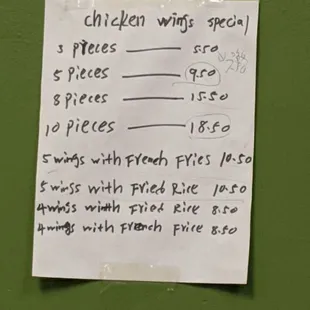 chicken wings special
3 pieces —— 5.50
5 pieces —— 9.50
8 pieces —— 15.50
10 pieces —— 18.50
5 wings with French Fries 10.50
5 wings with Fried Rice 10.50
4 wings with Fried Rice 8.50
4 wings with French Frice 8.50